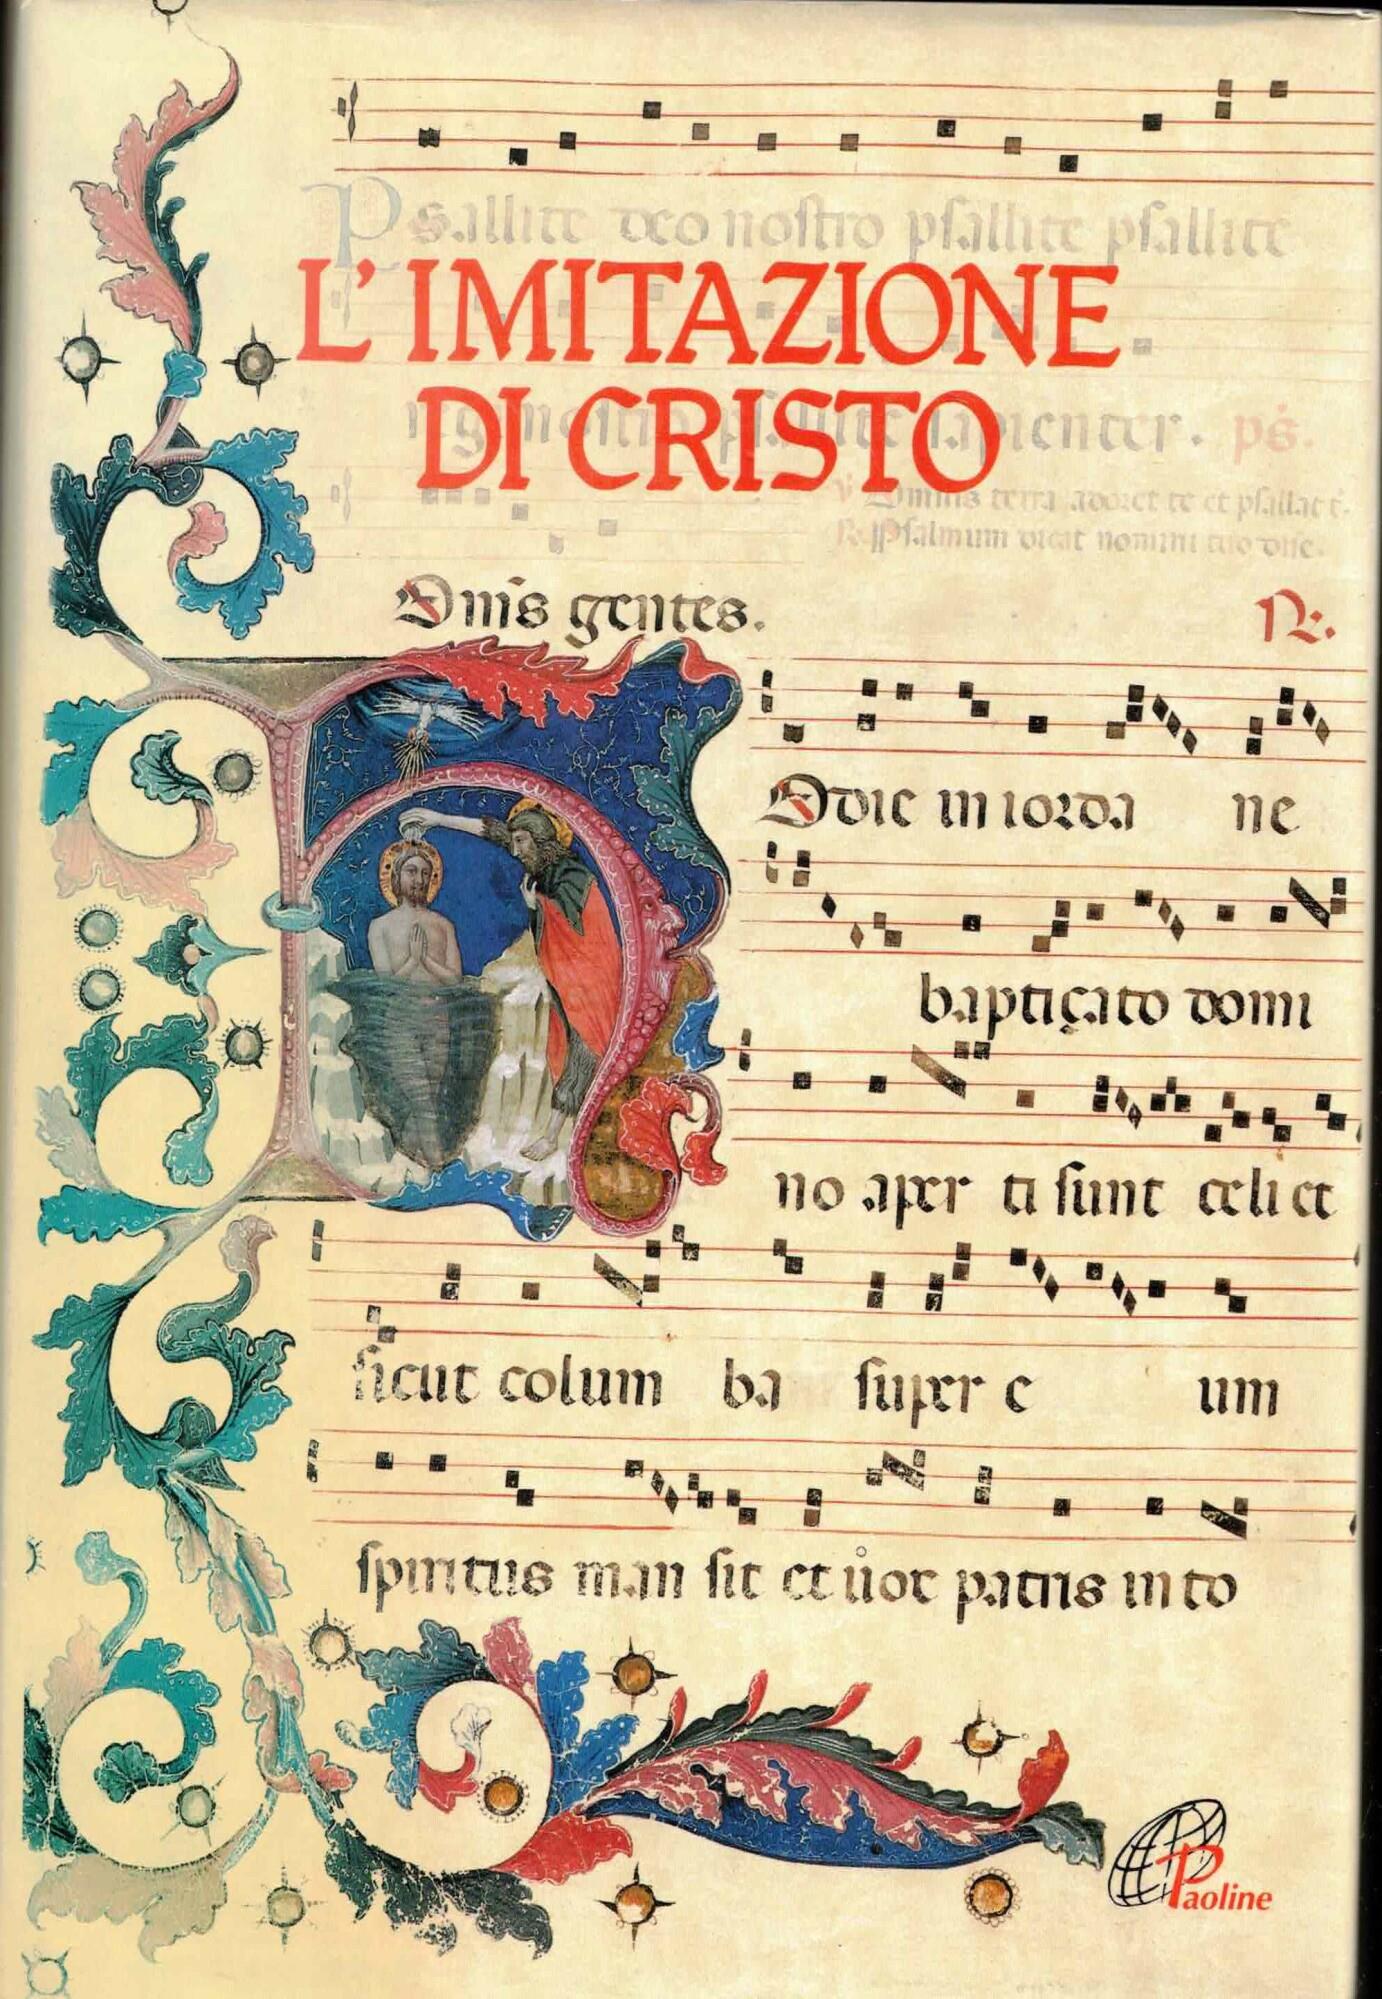 Psallite deo nostro psallite psallite
L'IMITAZIONE
DI CRISTO
psallite sapienter. ps.
℣ Omnis terra adoret te et psallat t.
℟. Psalmum dicat nomini tuo dñe.
Omīs gentes. ℟.
Hodie in iorda ne
baptiçato domi
no aper ti sunt celi et
sicut colum ba super e um
spiritus man sit et uox patris in to
Paoline